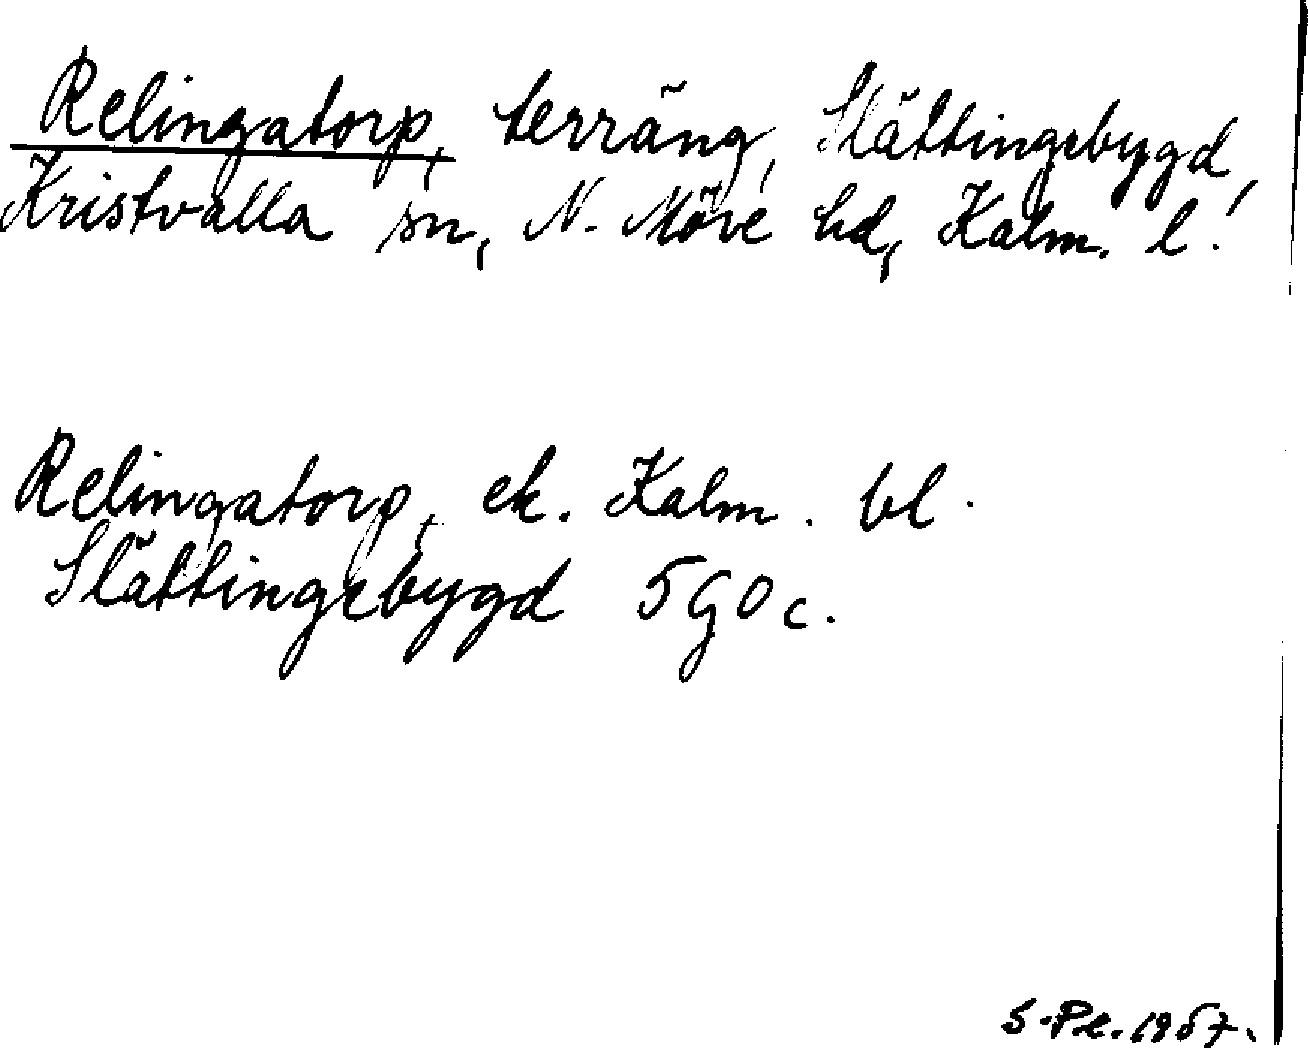 Relingatorp, terräng, Slättingebygd,
Kristvalla sn, N. Möre hd, Kalm. l.
Relingatorp, ek. Kalm. bl.
Slättingebygd 5 G 0 c.
S. Pe. 1967.